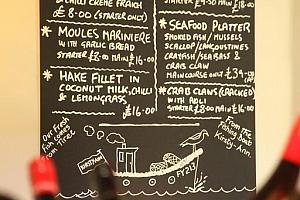 & CHILLI CREME FRAICH
£8.00 (STARTER ONLY)
* MOULES MARINIERE
WITH GARLIC BREAD
STARTER £8.00 MAIN £16.00
* HAKE FILLET IN
COCONUT MILK, CHILLI
& LEMONGRASS
£16.00
STARTER £9.50 MAIN £18.00
* SEAFOOD PLATTER
SMOKED FISH / MUSSELS
SCALLOP / LANGOUSTINES
CRAYFISH / SEA BASS &
CRAB CLAW
MAIN COURSE ONLY £34
* CRAB CLAWS (CRACKED)
WITH AOLI
STARTER £8.00 MAIN £16.00
Our fresh
fish comes
from
Tiree
FY213
From the
fishing boat
Kirsty-Ann